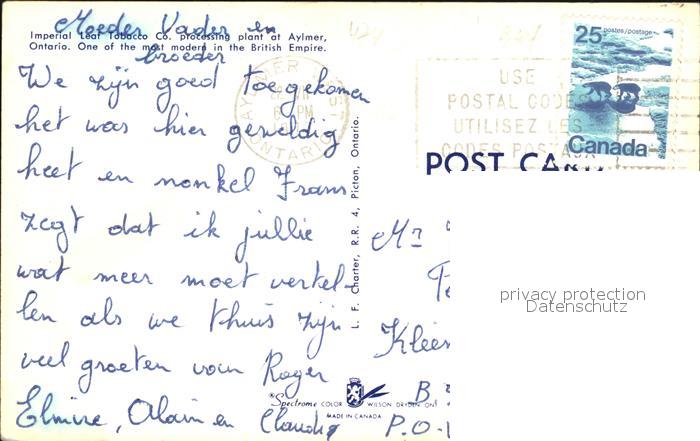 Moeder Vader en
broeder
Imperial Leaf Tobacco Co. processing plant at Aylmer,
Ontario. One of the most modern in the British Empire.
We zijn goed toegekomen
het was hier geweldig
heet en nonkel Frans
zegt dat ik jullie
wat meer moet vertel-
len als we thuis zijn
veel groeten van Roger
Elmire, Alain en Claudy
AYLMER
PM
ONTARIO
USE
POSTAL CODE
UTILISEZ LES
CODES POSTAUX
25 postes/postage
Canada
POST CARD
L. F. Charter, R.R. 4, Picton, Ontario.
Mr
Kleer
B
P.O.
privacy protection
Datenschutz
Spectrome COLOR WILSON DRYDEN ONT
MADE IN CANADA